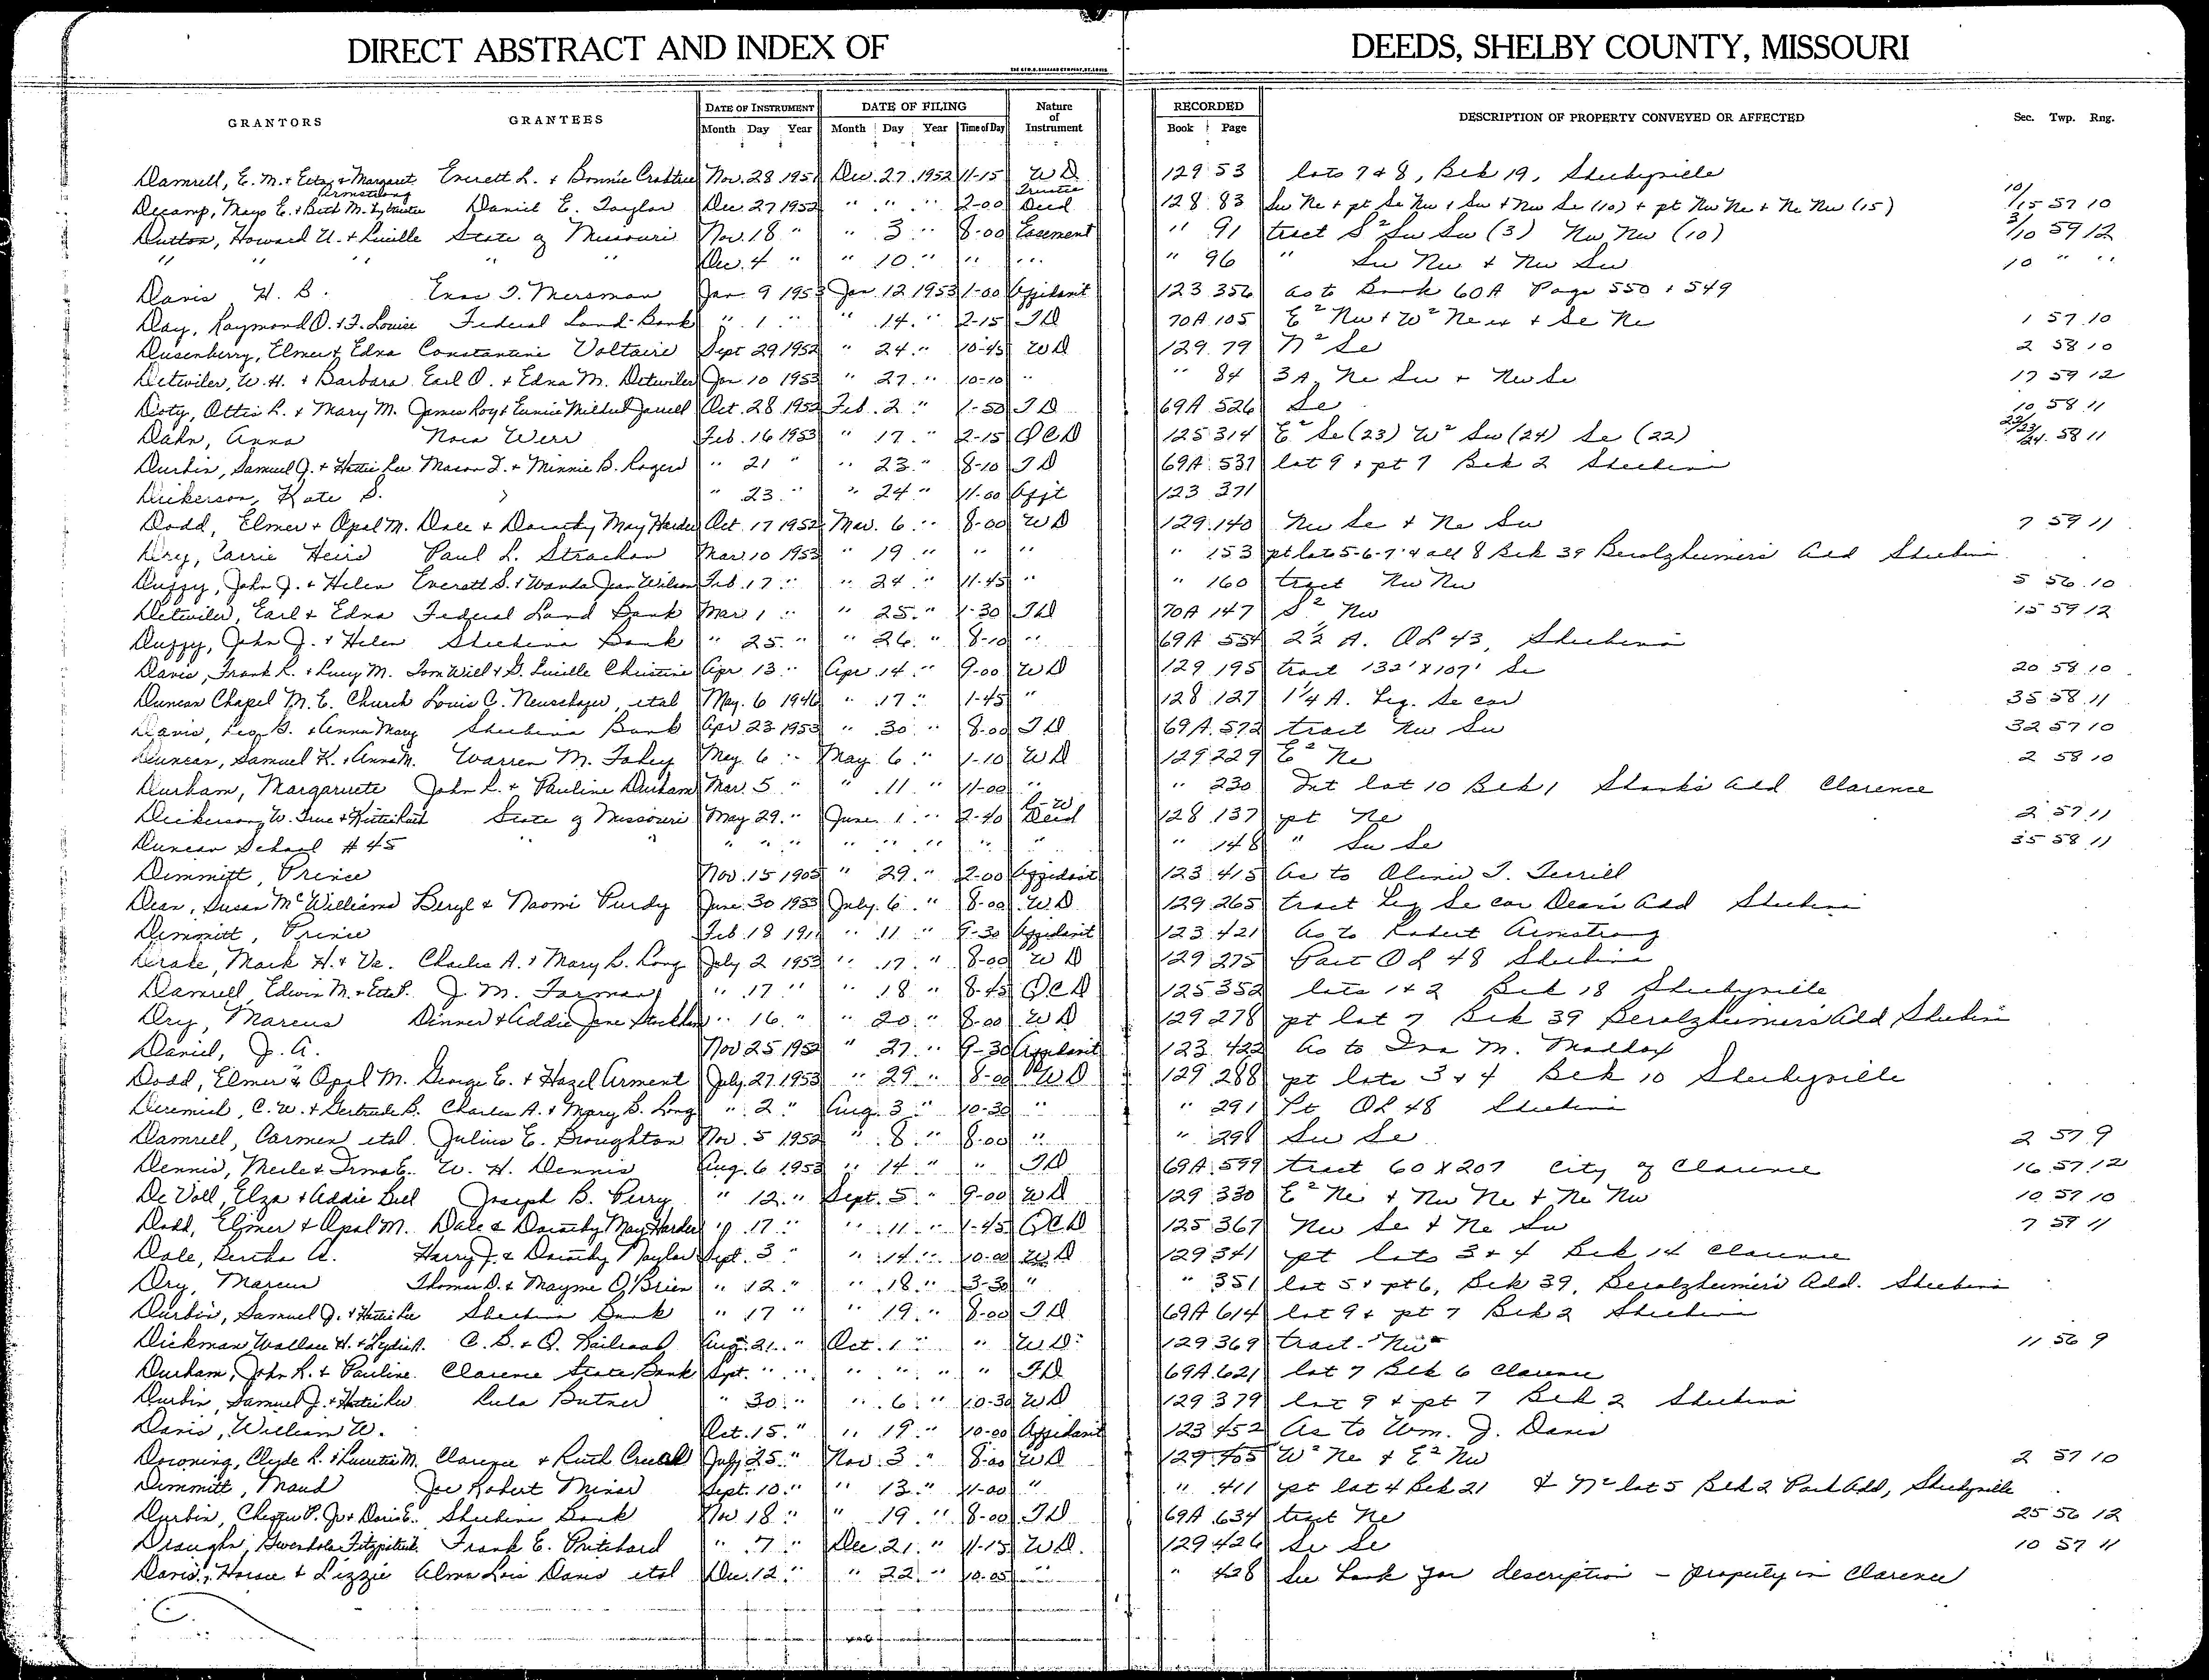 DIRECT ABSTRACT AND INDEX OF DEEDS, SHELBY COUNTY, MISSOURI
GRANTORS GRANTEES DATE OF INSTRUMENT Month Day Year DATE OF FILING Month Day Year Time of Day Nature of Instrument RECORDED Book Page DESCRIPTION OF PROPERTY CONVEYED OR AFFECTED Sec. Twp. Rng.
Damrell, E. M. + Etta, + Margaret Armstrong Everett L. + Bonnie Crabtree Nov. 28 1951 Dec. 27 1952 11-15 WD 129 53 lots 7 & 8, Blk 19, Shelbyville
Decamp, Mayo E. + Beth M. by trustee Daniel E. Taylor Dec. 27 1952 " " " 2-00 Trustee Deed 128 83 Sw Ne + pt Se Nw + Sw + Nw Se (10) + pt Nw Ne + Ne Nw (15) 10/15 57 10
Dutton, Howard U. + Lucille State of Missouri Nov. 18 " " 3 " 8-00 Easement " 91 tract S² Sw Sw (3) Nw Nw (10) 3/10 59 12
" " " " " Dec. 4 " " 10 " " " " 96 " Sw Nw + Nw Sw 10 " "
Davis, H. B. Enos T. Mersman Jan 9 1953 Jan. 12 1953 1-00 Affidavit 123 356 as to Book 60A Page 550 + 549
Day, Raymond O. + F. Louise Federal Land Bank " 1 " " 14 " 2-15 TD 70A 105 E² Nw + W² Ne ex + Se Ne 1 57 10
Dusenberry, Elmer & Edna Constantine Voltaire Sept 29 1952 " 24 " 10-45 WD 129 79 N² Se 2 58 10
Detwiler, W. H. + Barbara Earl O. + Edna M. Detwiler Jan 10 1953 " 27 " 10-10 " " 84 3A. Ne Sw + Nw Se 17 59 12
Doty, Ottis R. + Mary M. James Roy + Eunice Mildred Jarrell Oct. 28 1952 Feb. 2 " 1-50 TD 69A 526 Se 10 58 11
Dahn, Anna Nora Werr Feb. 16 1953 " 17 " 2-15 QCD 125 314 E² Se (23) W² Sw (24) Se (22) 22/23/24 58 11
Durbin, Samuel J. + Hattie Lee Mason D. + Minnie B. Rogers " 21 " " 23 " 8-10 TD 69A 531 lot 9 + pt 7 Blk 2 Shelbina
Dickerson, Kate S. " 23 " " 24 " 11-00 Afft 123 371
Dodd, Elmer + Opal M. Dale + Dorothy May Harder Oct. 17 1952 Mar. 6 " 8-00 WD 129 140 Nw Se + Ne Sw 7 59 11
Dry, Carrie Heirs Paul L. Strachan Mar 10 1953 " 19 " " " " 153 pt lots 5-6-7 & all 8 Blk 39 Berolzheimer's Add Shelbina
Duzzy, John J. + Helen Everett S. + Wanda Jean Wilson Feb. 17 " " 24 " 11-45 " " 160 tract Nw Nw 5 56 10
Detwiler, Earl + Edna Federal Land Bank Mar 1 " " 25 " 1-30 TD 70A 147 S² Nw 15 59 12
Duzzy, John J. + Helen Shelbina Bank " 25 " " 26 " 8-10 " 69A 554 2½ A. OL 43, Shelbina
Davis, Frank R. + Lucy M. Tom Will + G. Lucille Christine Apr 13 " Apr 14 " 9-00 WD 129 195 tract 132' X 107' Se 20 58 10
Duncan Chapel M. E. Church Louis C. Neuschafer, etal May 6 1946 " 17 " 1-45 " 128 127 1¼ A. beg. Se cor 35 58 11
Davis, Leo G. + Anna Mary Shelbina Bank Apr 23 1953 " 30 " 8-00 TD 69A 572 tract Nw Sw 32 57 10
Duncan, Samuel K. + Anna M. Warren M. Fahey May 6 " May 6 " 1-10 WD 129 229 E² Ne 2 58 10
Durham, Margaruete John R. + Pauline Durham Mar. 5 " " 11 " 11-00 " " 230 Int lot 10 Blk 1 Shanks Add Clarence
Dickerson, W. True + State of Missouri May 29 " June 1 " 2-40 R-W Deed 128 137 pt Ne 2 57 11
Duncan School #45 " " " " " " " " " " " 148 " Sw Se 35 58 11
Dimmitt, Prince Nov. 15 1905 " 29 " 2-00 Affidavit 123 415 as to T. Terrill
Dean, Susan McWilliams Beryl + Naomi Purdy June 30 1953 July 6 " 8-00 WD 129 265 tract beg Se cor Dean's Add Shelbina
Dimmitt, Prince Feb 18 1911 " 11 " 9-30 Affidavit 123 421 as to Robert Armstrong
Drake, Mark H. + Va. Charles A. + Mary B. Long July 2 1953 " 17 " 8-00 WD 129 275 Part OL 48 Shelbina
Damrell, Edwin M. + Etta P. J. M. Forman " 17 " " 18 " 8-45 QCD 125 352 lots 1 + 2 Blk 18 Shelbyville
Dry, Marcus Dinner + Addie Jane Stockton " 16 " " 20 " 8-00 WD 129 278 pt lot 7 Blk 39 Berolzheimer's Add Shelbina
Daniel, J. A. Nov 25 1952 " 27 " 9-30 Affidavit 123 422 as to Ira M. Maddox
Dodd, Elmer & Opal M. George E. + Hazel Arment July 27 1953 " 29 " 8-00 WD 129 288 pt lots 3 + 4 Blk 10 Shelbyville
Deremiah, C. W. + Gertrude B. Charles A. + Mary B. Long " 2 " Aug. 3 " 10-30 " " 291 Pt OL 48 Shelbina
Damrell, Carmen etal Julius E. Broughton Nov. 5 1952 " 8 " 8-00 " " 298 Sw Se 2 57 9
Dennis, Merle + Irma E. W. H. Dennis Aug. 6 1953 " 14 " " TD 69A 599 tract 60 X 207 City of Clarence 16 57 12
De Voll, Elza + Addie Bell Joseph B. Perry " 12 " Sept. 5 " 9-00 WD 129 330 E² Ne + Nw Ne + Ne Nw 10 57 10
Dodd, Elmer + Opal M. Dale & Dorothy May Harder " 17 " " 11 " 1-45 QCD 125 367 Nw Se + Ne Sw 7 59 11
Dale, Bertha A. Harry J. & Dorothy Naylor Sept. 3 " " 14 " 10-00 WD 129 341 pt lots 3 + 4 Blk 14 Clarence
Dry, Marcus Thomas D. + Mayme O'Brien " 12 " " 18 " 3-30 " " 351 lot 5 + pt 6, Blk 39, Berolzheimer's Add. Shelbina
Durbin, Samuel J. + Hattie Lee Shelbina Bank " 17 " " 19 " 8-00 TD 69A 614 lot 9 + pt 7 Blk 2 Shelbina
Dickman, Wallace H. + Lydia A. C. B. + Q. Railroad Aug. 21 " Oct. 1 " " WD 129 369 tract Nw 11 56 9
Durham, John R. + Pauline Clarence State Bank Sept. " " " " " " TD 69A 621 lot 7 Blk 6 Clarence
Durbin, Samuel J. + Hattie Lee Lula Butner " 30 " " 6 " 10-30 WD 129 379 lot 9 + pt 7 Blk 2 Shelbina
Davis, William W. Oct. 15 " " 19 " 10-00 Affidavit 123 452 As to Wm. J. Davis
Downing, Clyde R. + Lucretia M. Clarence + Ruth July 25 " Nov. 3 " 8-00 WD 129 405 W² Ne + E² Nw 2 57 10
Dimmitt, Maud Joe Robert Minor Sept. 10 " " 13 " 11-00 " " 411 pt lot 4 Blk 21 & N² lot 5 Blk 2 Park Add, Shelbyville
Durbin, Chester P. Jr + Doris E. Shelbina Bank Nov 18 " " 19 " 8-00 TD 69A 634 tract Ne 25 56 12
Draughn, Gwendola Fitzpatrick Frank E. Pritchard " 7 " Dec. 21 " 11-15 WD 129 426 Se Se 10 57 11
Davis, Horace + Lizzie Alma Lois Davis etal Dec. 12 " " 22 " 10-05 " " 428 See book for description - property in Clarence